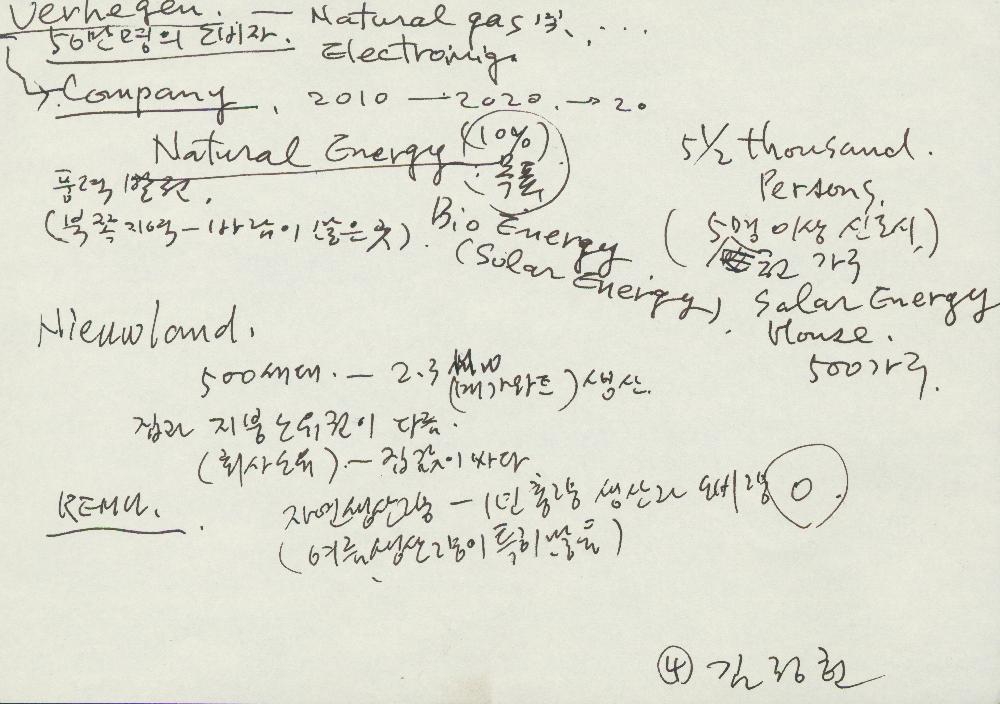 Verhegen. — Natural gas 및 ....
50만명의 소비자. Electronig.
Company. 2010 → 2020. → 20
Natural Energy (10%) 목표
풍력 발전.
(북쪽지역 - 바람이 많은 곳).
Bio Energy
(Solar Energy)
5 1/2 thousand.
Persons.
(5명 이상 신도시)
가구
Solar Energy
House.
500가구.
Nieuwland.
500세대. — 2.3 MW
(메가와트) 생산.
집과 지붕 소유권이 다름.
(회사소유). — 집값이 싸다
REMU.
자연생산량 — 1년 총량 생산과 소비량 0.
(여름생산량이 특히 많음)
④ 김정현